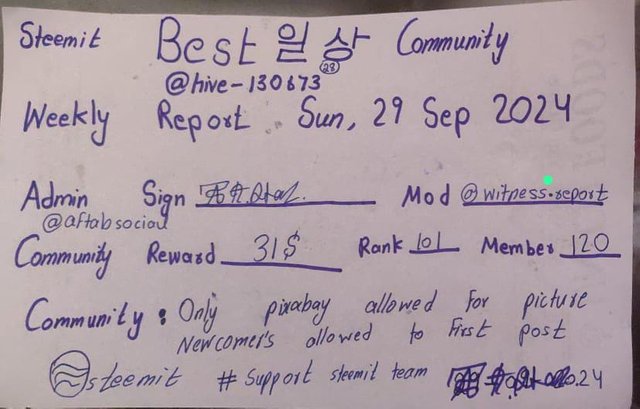 Steemit Best 일상 Community
28
@hive-130673
Weekly Report Sun, 29 Sep 2024
Admin Sign Mod @witness.report
@aftabsocial
Community Reward 31$ Rank 101 Member 120
Community : Only pixabay allowed for picture
Newcomer's allowed to First post
steemit # Support steemit team